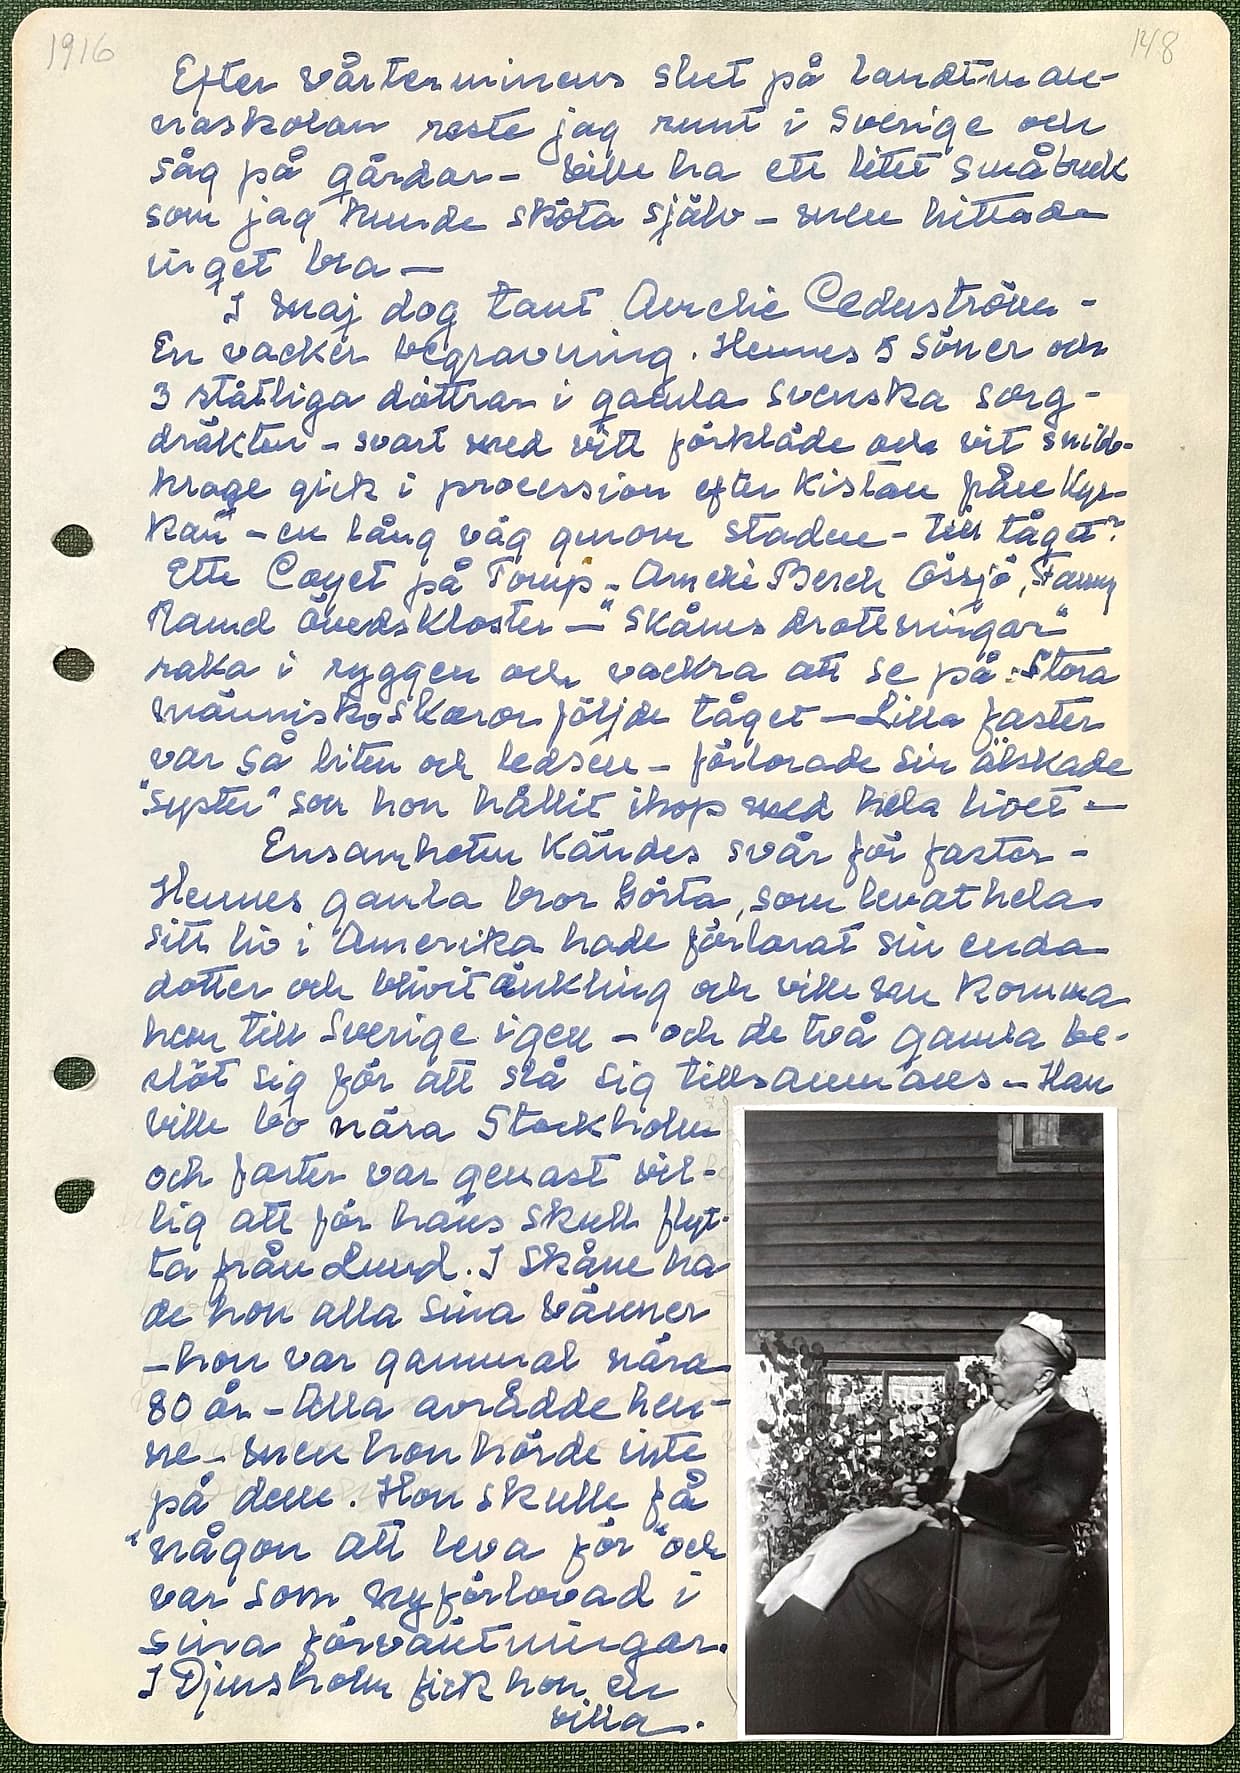 1916
148
Efter vårterminens slut på landtman-
naskolan reste jag runt i Sverige och
såg på gårdar – ville ha ett litet småbruk
som jag kunde sköta själv – men hittade
inget bra –
I maj dog tant Amelie Cederström –
En vacker begravning. Hennes 5 söner och
3 ståtliga döttrar i gamla svenska sorg-
dräkten – svart med vitt förkläde och vit snibb-
krage gick i procession efter kistan från Kyr-
kan – en lång väg genom staden – till tåget.
Ette Coyet på Torup – Amelie Berch Össjö, Fanny
Ramel Övedskloster – "Skånes drottningar"
raka i ryggen och vackra att se på. Stora
människoskaror följde tåget – Lilla faster
var så liten och ledsen – förlorade sin älskade
"syster" som hon hållit ihop med hela livet –
Ensamheten kändes svår för faster –
Hennes gamla bror Gösta, som levat hela
sitt liv i Amerika hade förlorat sin enda
dotter och blivit änkling och ville nu komma
hem till Sverige igen – och de två gamla be-
slöt sig för att slå sig tillsammans – Han
ville bo nära Stockholm
och faster var genast vil-
lig att för hans skull flyt-
ta från Lund. I Skåne ha
de hon alla sina vänner
– hon var gammal nära
80 år – Alla avrådde hen-
ne – men hon hörde inte
på dem. Hon skulle få
"någon att leva för" och
var som nyförlovad i
sina förväntningar.
I Djursholm fick hon en
villa.